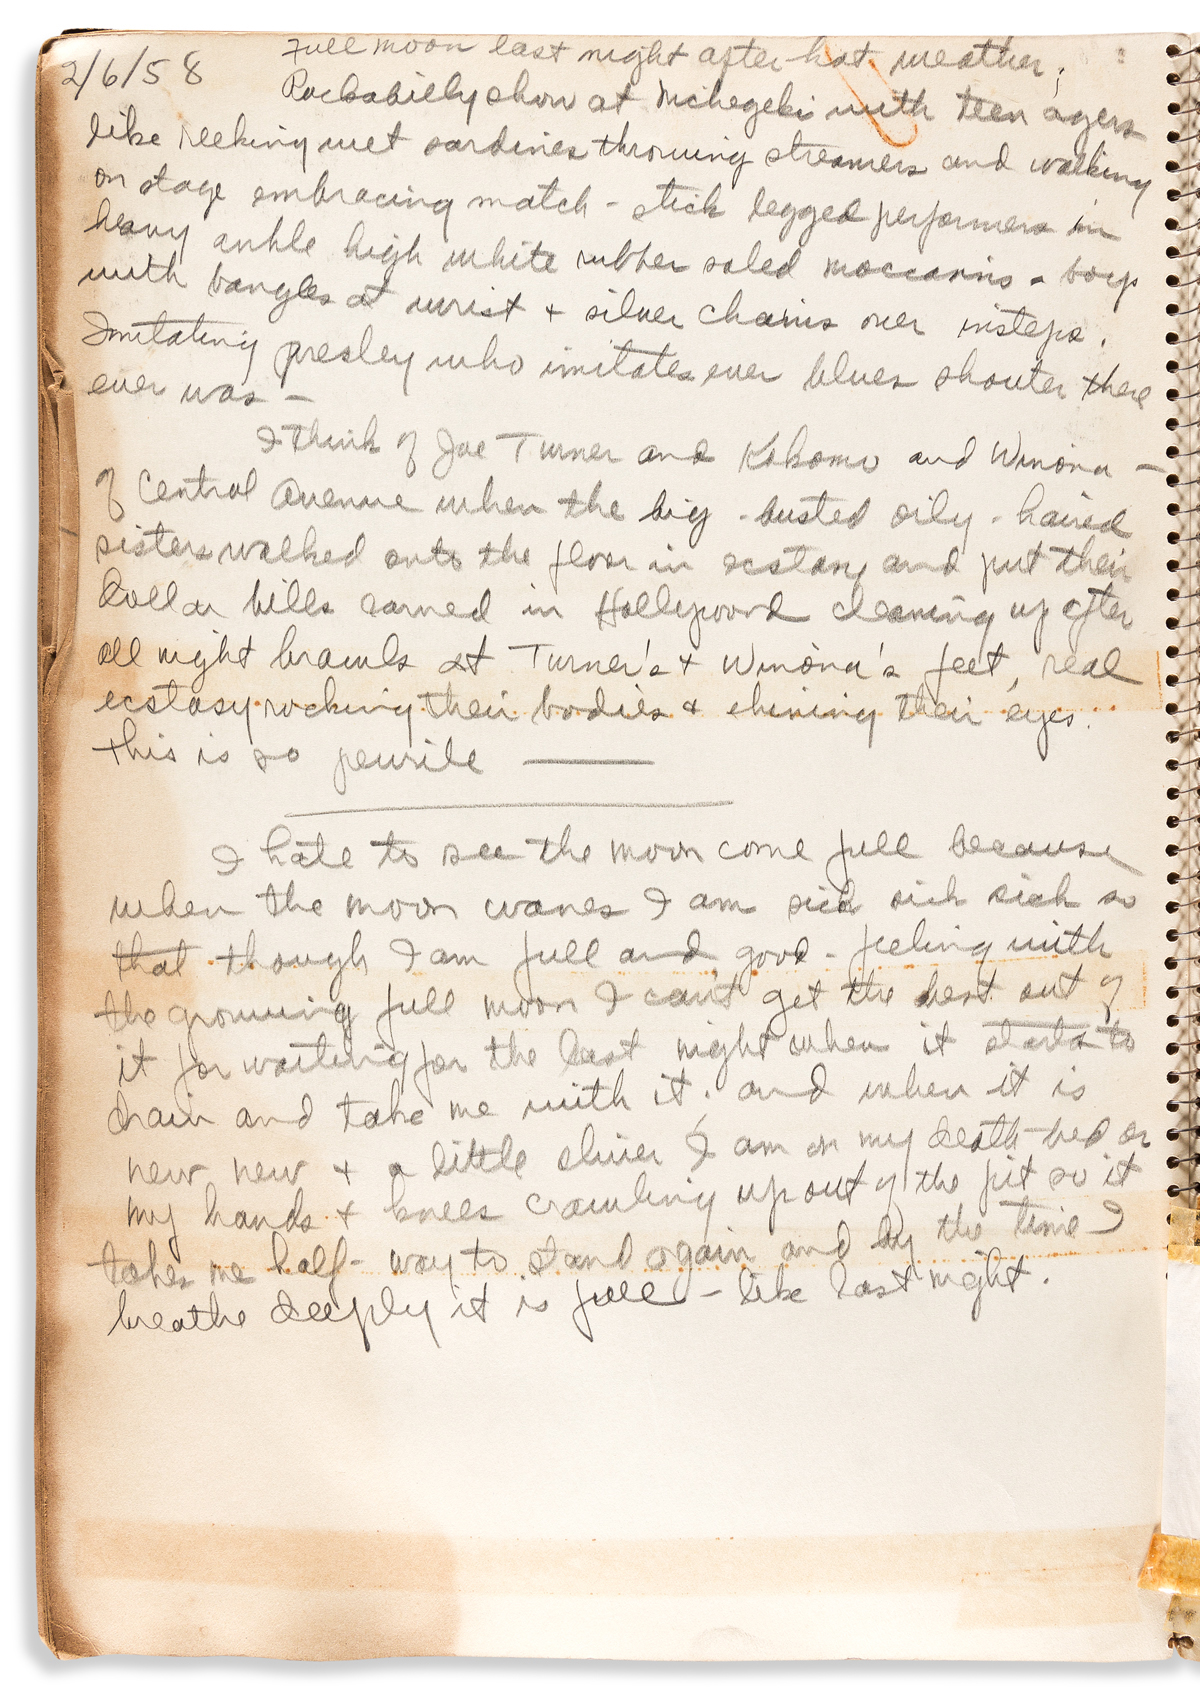 2/6/58 Full moon last night after hot weather;
Rockabilly show at Nichegeki with teen agers
like reeking wet sardines throwing streamers and walking
on stage embracing match-stick legged performers in
heavy ankle high white rubber soled moccasins - boys
with bangles at wrist + silver chains over insteps.
Imitating presley who imitates ever blues shouter there
ever was -
I think of Joe Turner and Kokomo and Winona -
of Central Avenue when the big-busted oily-haired
sisters walked onto the floor in ecstasy and put their
dollar bills earned in Hollywood cleaning up after
all night brawls at Turner's + Winona's feet, real
ecstasy rocking their bodies + shining their eyes.
This is so puerile ———
I hate to see the moon come full because
when the moon wanes I am sick sick sick so
that though I am full and good-feeling with
the growing full moon I can't get the best out of
it for waiting for the last night when it starts to
drain and take me with it. and when it is
new new + a little sliver I am on my death-bed or
my hands + knees crawling up out of the pit so it
takes me half-way to stand again and by the time I
breathe deeply it is full - like last night.